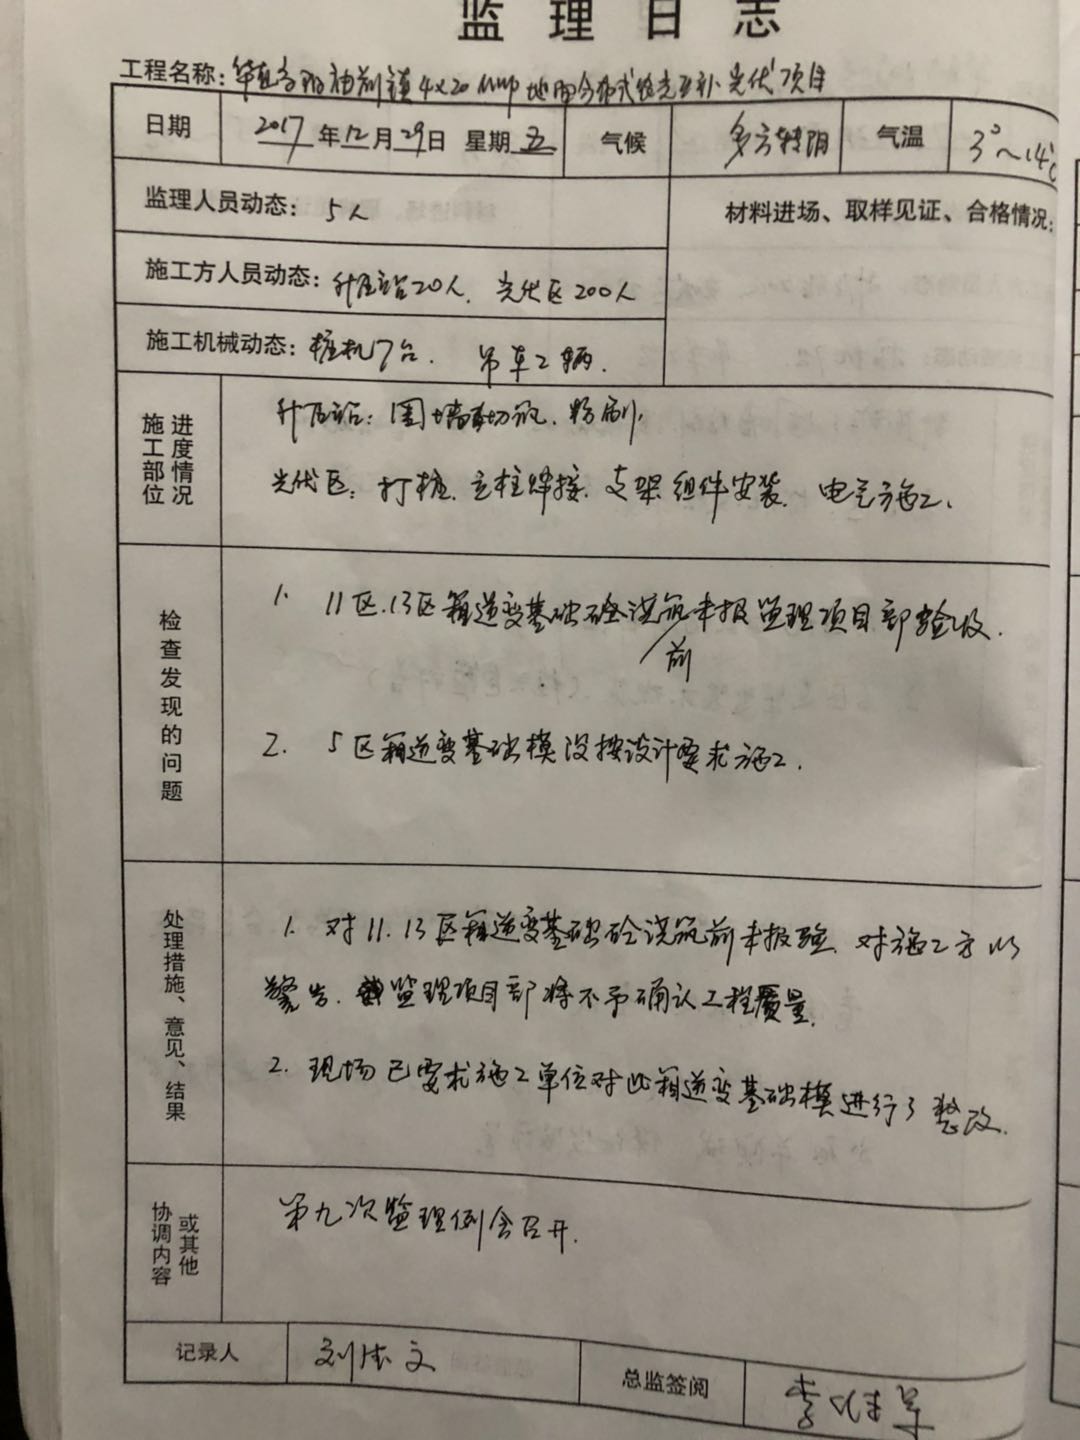 监理日志
工程名称: 镇4×20MWp地面分布式农光互补光伏项目
日期 2017年12月29日 星期五 气候 多云转阴 气温 3°~14℃
监理人员动态: 5人 材料进场、取样见证、合格情况:
施工方人员动态: 升压站20人. 光伏区200人
施工机械动态: 桩机7台. 吊车2辆.
施工部位进度情况
升压站: 围墙砌筑. 粉刷.
光伏区: 打桩. 立柱焊接. 支架组件安装. 电气施工.
检查发现的问题
1. 11区.13区箱逆变基础砼浇筑前未报监理项目部验收.
2. 5区箱逆变基础模没按设计要求施工.
处理措施、意见、结果
1. 对11.13区箱逆变基础砼浇筑前未报验. 对施工方以
警告. 监理项目部将不予确认工程质量.
2. 现场已要求施工单位对此箱逆变基础模进行了整改.
协调内容或其他
第九次监理例会召开.
记录人 刘 文 总监签阅 李